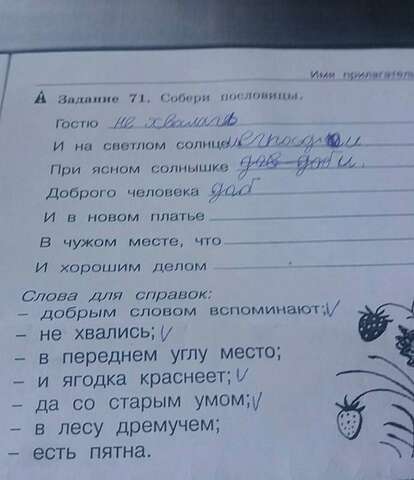 Имя прилагатель
Задание 71. Собери пословицы.
Гостю не хвались
И на светлом солнце
При ясном солнышке
Доброго человека доб
И в новом платье
В чужом месте, что
И хорошим делом
Слова для справок:
– добрым словом вспоминают;
– не хвались;
– в переднем углу место;
– и ягодка краснеет;
– да со старым умом;
– в лесу дремучем;
– есть пятна.